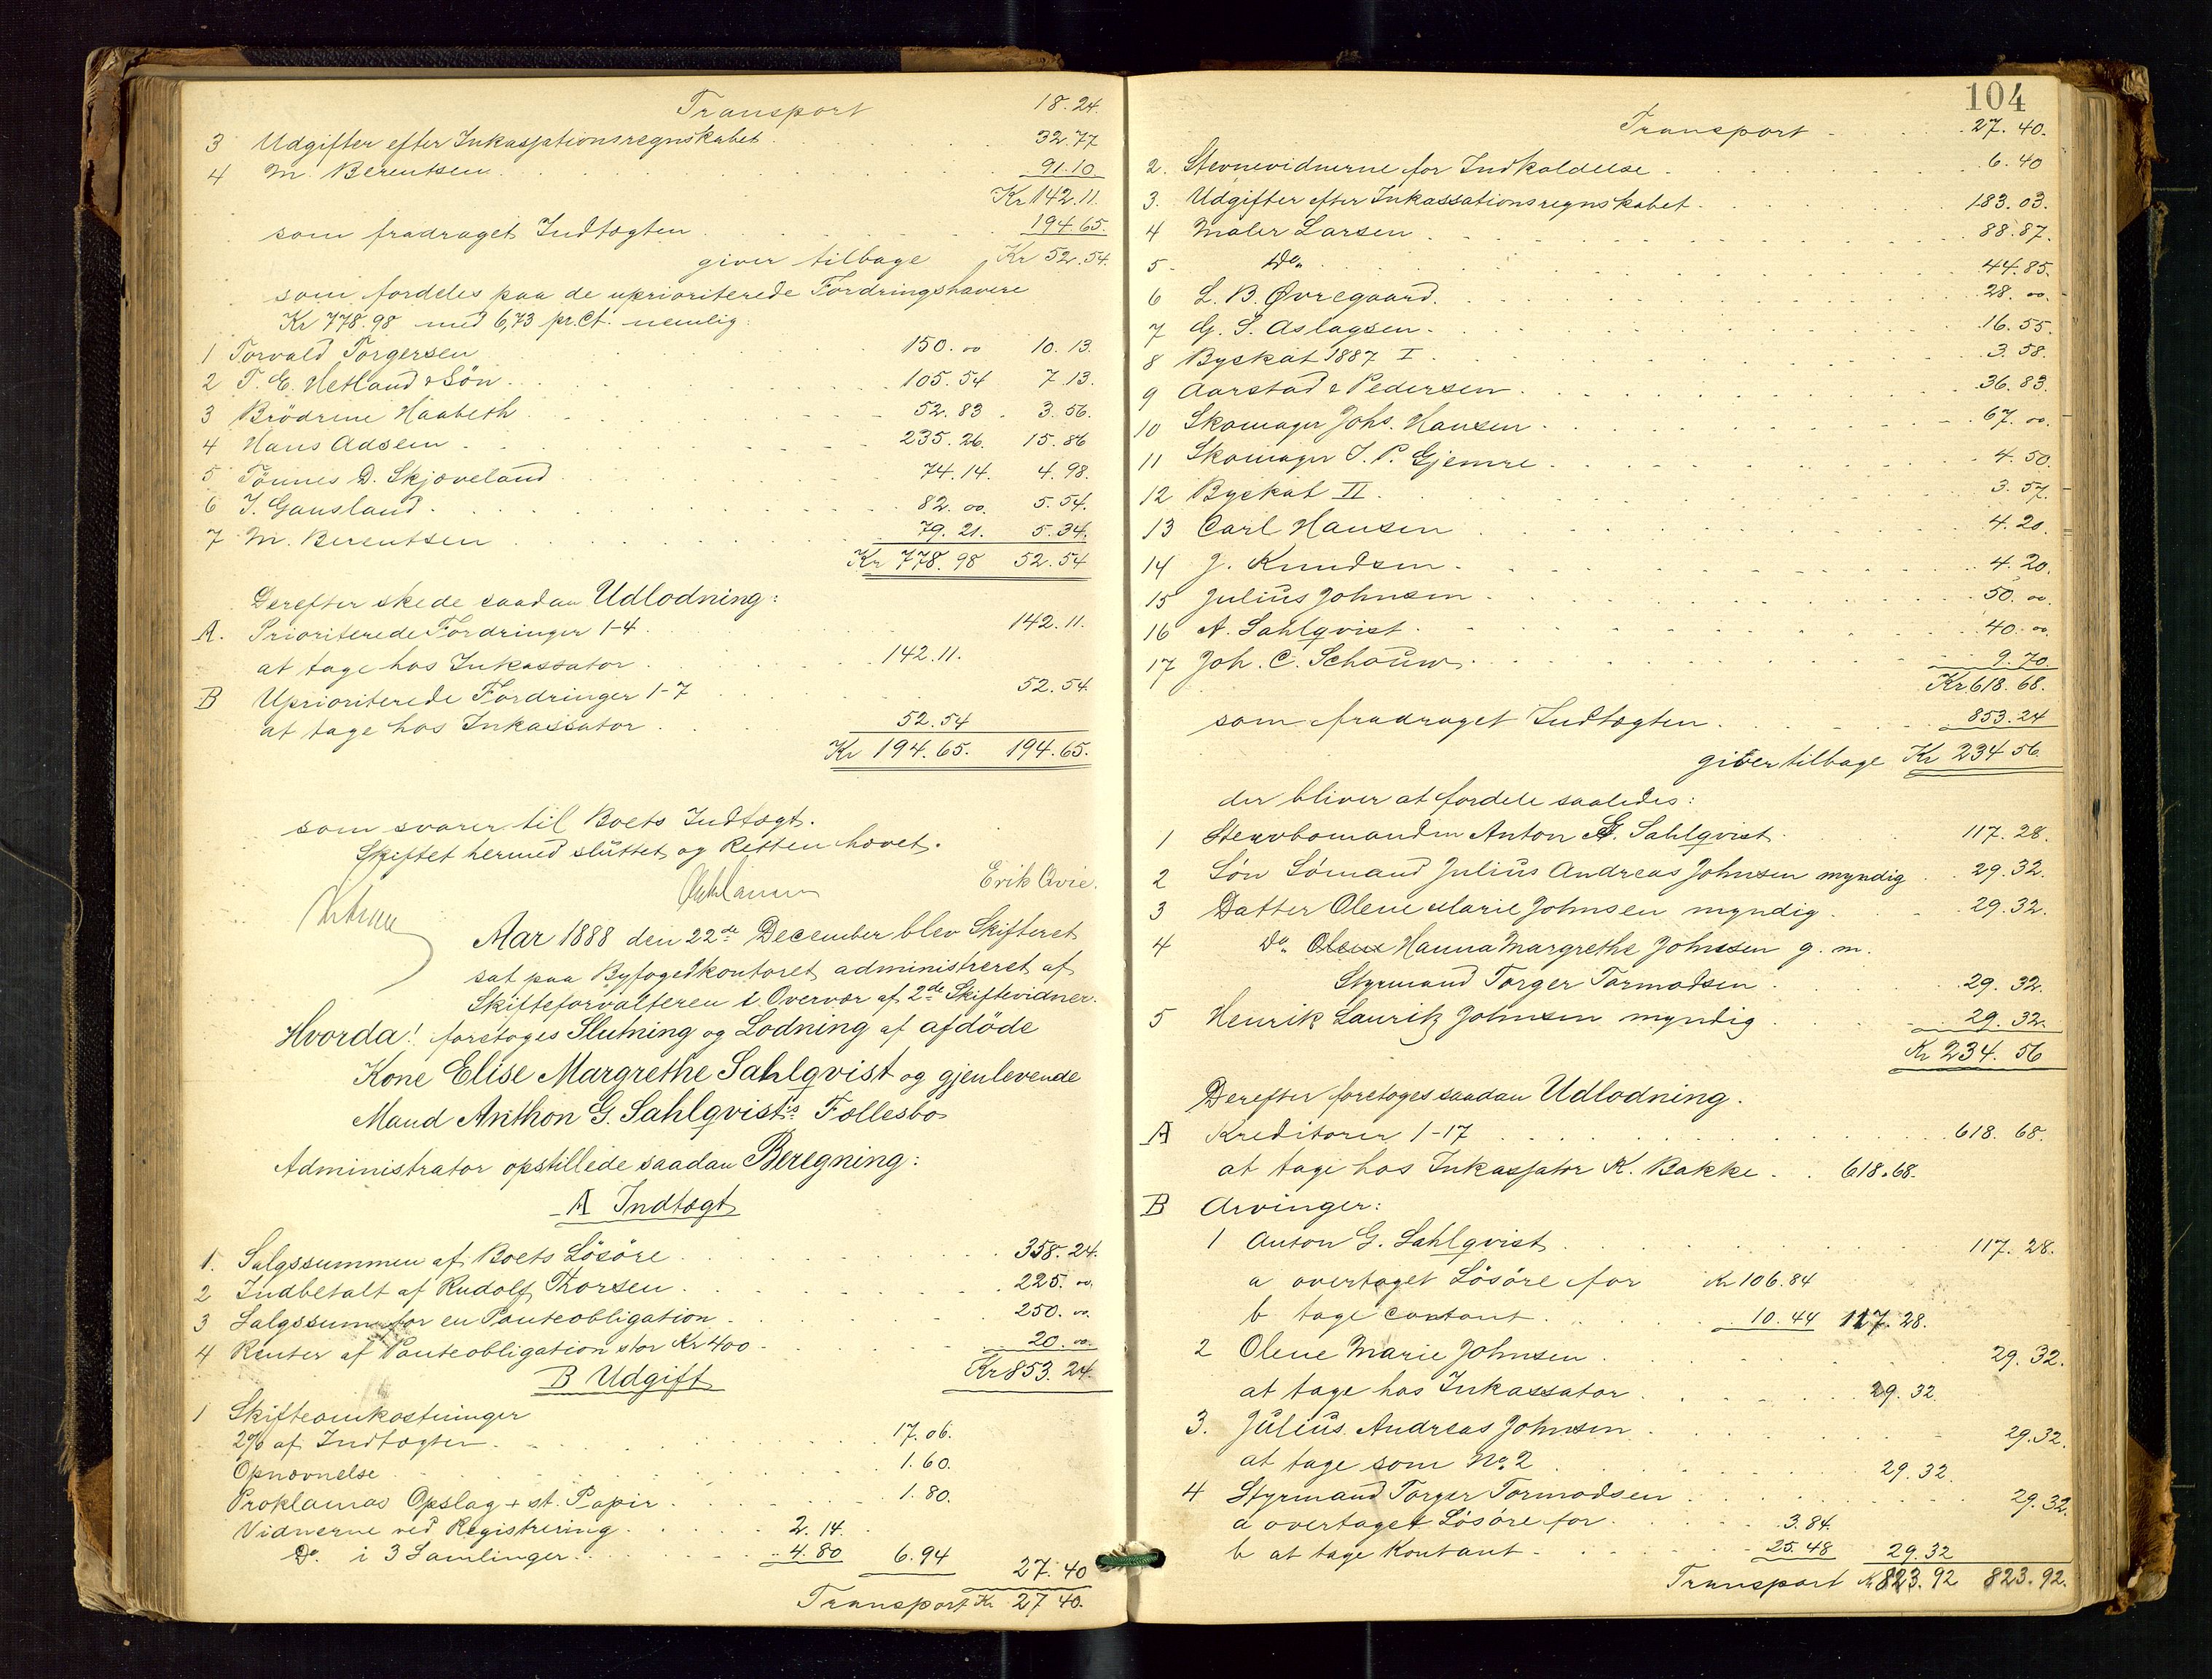 Transport 18.24.
3 Udgifter efter Inkassationsregnskabet 32.77
4 M. Berentsen 91.10
Kr 142.11.
som fradraget Indtægten 194.65.
giver tilbage Kr 52.54.
som fordeles paa de uprioriterede Fordringshavere
Kr 778.98 med 6,73 pr.Ct. nemlig:
1 Torvald Torgersen 150.00 10.13.
2 T. E. Hetland & Søn 105.54 7.13.
3 Brödrene Haabeth 52.83 3.56.
4 Hans Adsem 235.26. 15.86
5 Tönnes D. Skjæveland 74.14. 4.98.
6 I. Gausland 82.00. 5.54.
7 M. Berentsen 79.21. 5.34.
Kr 778.98 52.54
Derefter skede saadan Udlodning:
A. Prioriterede Fordringer 1-4 142.11.
at tage hos Inkassator 142.11.
B Uprioriterede Fordringer 1-7 52.54
at tage hos Inkassator 52.54
Kr 194.65. 194.65.
som svarer til Boets Indtægt.
Skiftet hermed sluttet og Retten hævet.
Erik Qvie.
Aar 1888 den 22de December blev Skifteret
sat paa Byfogedkontoret administreret af
Skifteforvalteren i Overvær af 2de Skiftevidner.
Hvorda! foretoges Slutning og Lodning af afdöde
Kone Elise Margrethe Sahlqvist og gjenlevende
Mand Anthon G. Sahlqvist's Fællesbo
Administrator opstillede saadan Beregning:
A Indtægt
1. Salgssummen af Boets Lösöre 358.24.
2 Indbetalt af Rudolf Thorsen 225.00.
3 Salgssum for en Panteobligation 250.00.
4 Renter af Panteobligation stor Kr 400 20.00.
Kr 853.24.
B Udgift
1 Skifteomkostninger
2% af Indtægten 17.06.
Opnævnelse 1.60.
Proklamas Opslag + st. Papir 1.80.
Vidnerne ved Registrering 2.14.
Do. i 3 Samlinger 4.80 6.94 27.40
Transport Kr 27 40.
104
Transport 27.40.
2. Stevnevidnerne for Indkaldelse 6.40
3. Udgifter efter Inkassationsregnskabet 183.03.
4 Maler Larsen 88.87.
5 Do. 44.85.
6 L. B. Øvregaard. 28.00.
7 G. S. Aslagsen 16.55.
8 Byskat 1887 I 3.58.
9 Aarstad & Pedersen 36.83.
10 Skomager Johs. Hansen 67.00.
11 Skomager T. P. Gjemre 4.50.
12 Byskat II 3.57.
13 Carl Hansen 4.20.
14 J. Knudsen 4.20.
15 Julius Johnsen 50.00.
16 A. Sahlqvist 40.00.
17 Joh. C. Schouw 9.70.
Kr 618.68.
som fradraget Indtægten 853.24
giver tilbage Kr 234 56.
der bliver at fordele saaledes:
1 Stervbomanden Anton G. Sahlqvist 117.28.
2 Sön Sömand Julius Andreas Johnsen myndig 29.32.
3 Datter Olene Marie Johnsen myndig 29.32.
4 Do. Olene Hanna Margrethe Johnssen g. m.
Styrmand Torger Tormodsen 29.32.
5 Henrik Lauritz Johnsen myndig 29.32.
Kr 234.56
Derefter foretoges saadan Udlodning.
A Kreditorer 1-17 618.68.
at tage hos Inkassator K. Bakke 618.68.
B Arvinger:
1 Anton G. Sahlqvist 117.28.
a overtaget Lösöre for Kr 106.84
b tage contant 10.44 117.28.
2 Olene Marie Johnsen 29.32.
at tage hos Inkassator 29.32.
3. Julius Andreas Johnsen 29.32.
at tage som No. 2 29.32.
4 Styrmand Torger Tormodsen 29.32.
a overtaget Lösöre for 3.84.
b at tage Kontant 25.48 29.32
Transport Kr 823.92 823.92.